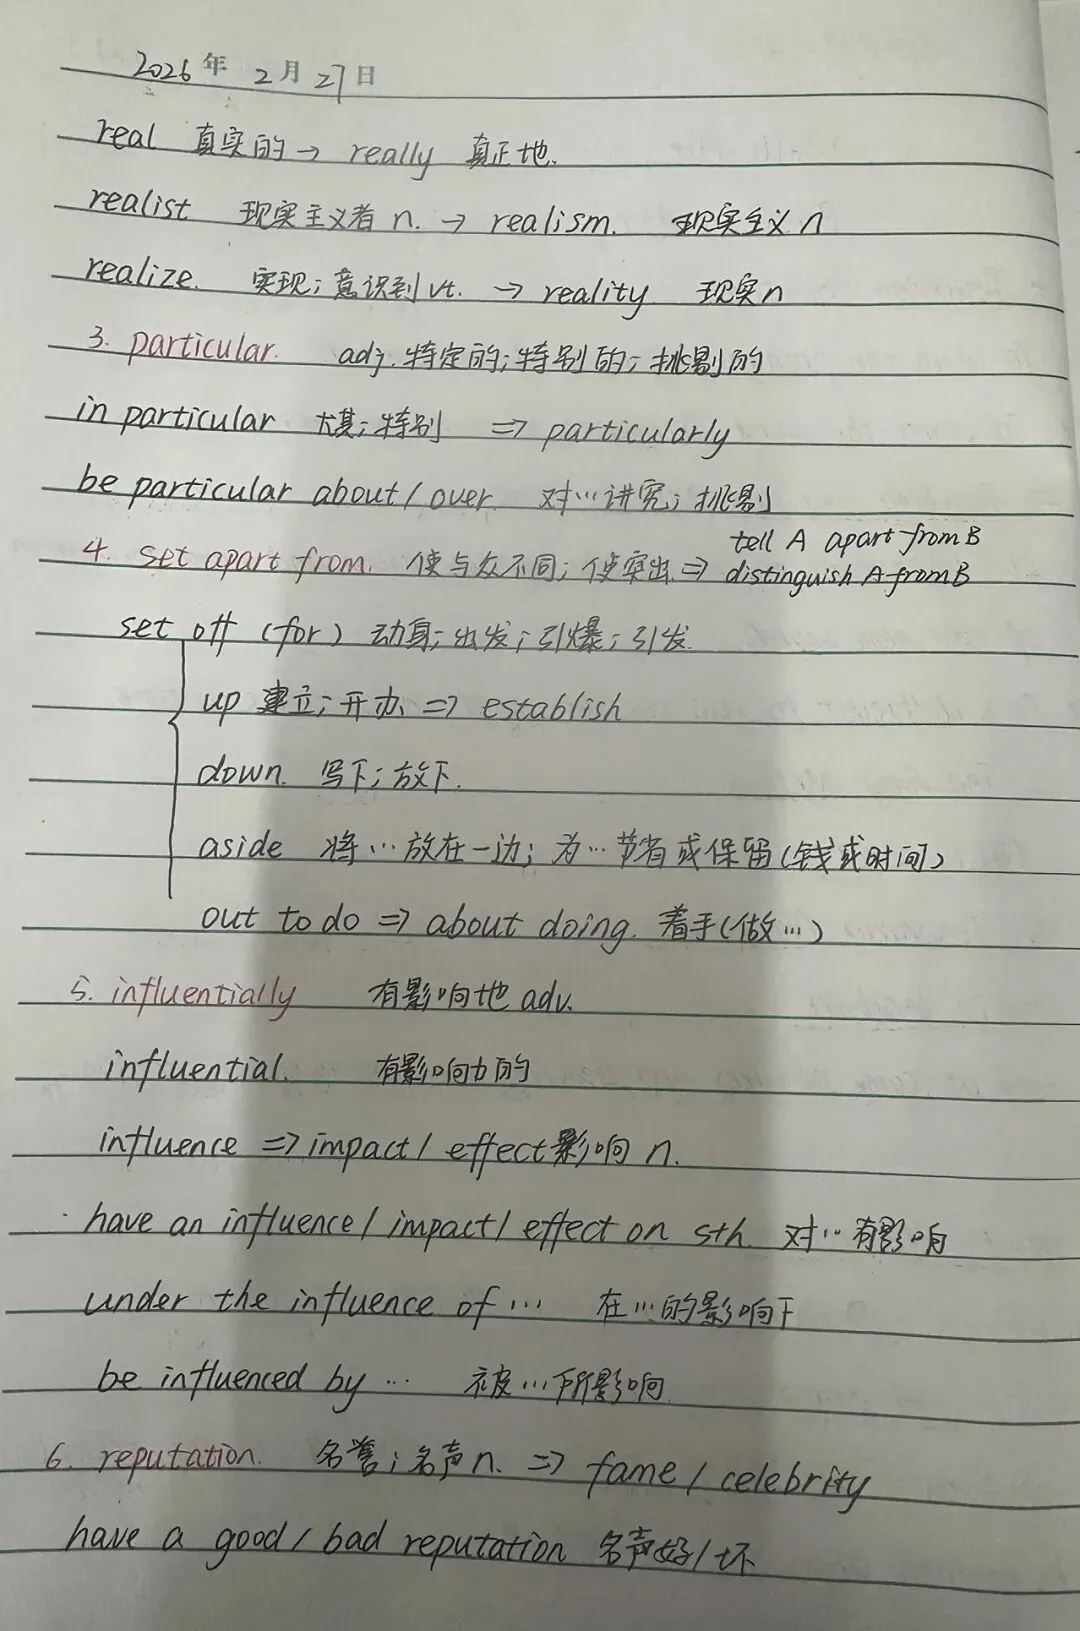 2026年 2月 27日
real 真实的 → really 真正地.
realist 现实主义者 n. → realism. 现实主义 n
realize. 实现; 意识到 vt. → reality 现实 n
3. particular. adj. 特定的; 特别的; 挑剔的
in particular 尤其; 特别 => particularly
be particular about / over. 对…讲究; 挑剔
tell A apart from B
4. set apart from. 使与众不同; 使突出. => distinguish A from B
set off (for) 动身; 出发; 引爆; 引发.
up 建立; 开办. => establish
down. 写下; 放下.
aside 将…放在一边; 为…节省或保留(钱或时间)
out to do => about doing. 着手(做…)
5. influentially 有影响地 adv.
influential. 有影响力的
influence => impact / effect 影响 n.
have an influence / impact / effect on sth. 对…有影响
under the influence of … 在…的影响下
be influenced by … 被…所影响
6. reputation. 名誉; 名声 n. => fame / celebrity
have a good / bad reputation 名声好 / 坏